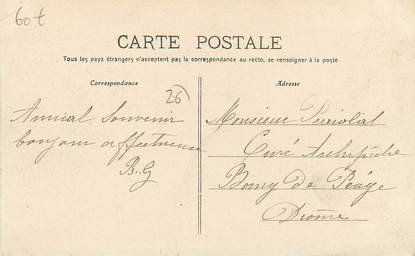 60t
CARTE POSTALE
Tous les pays étrangers n'acceptent pas la correspondance au recto, se renseigner à la poste
Correspondance
Adresse
26
Amical Souvenir
bonjour affectueuse
B. G
Monsieur
Curé Archiprêtre
Bourg de Péage
Drôme